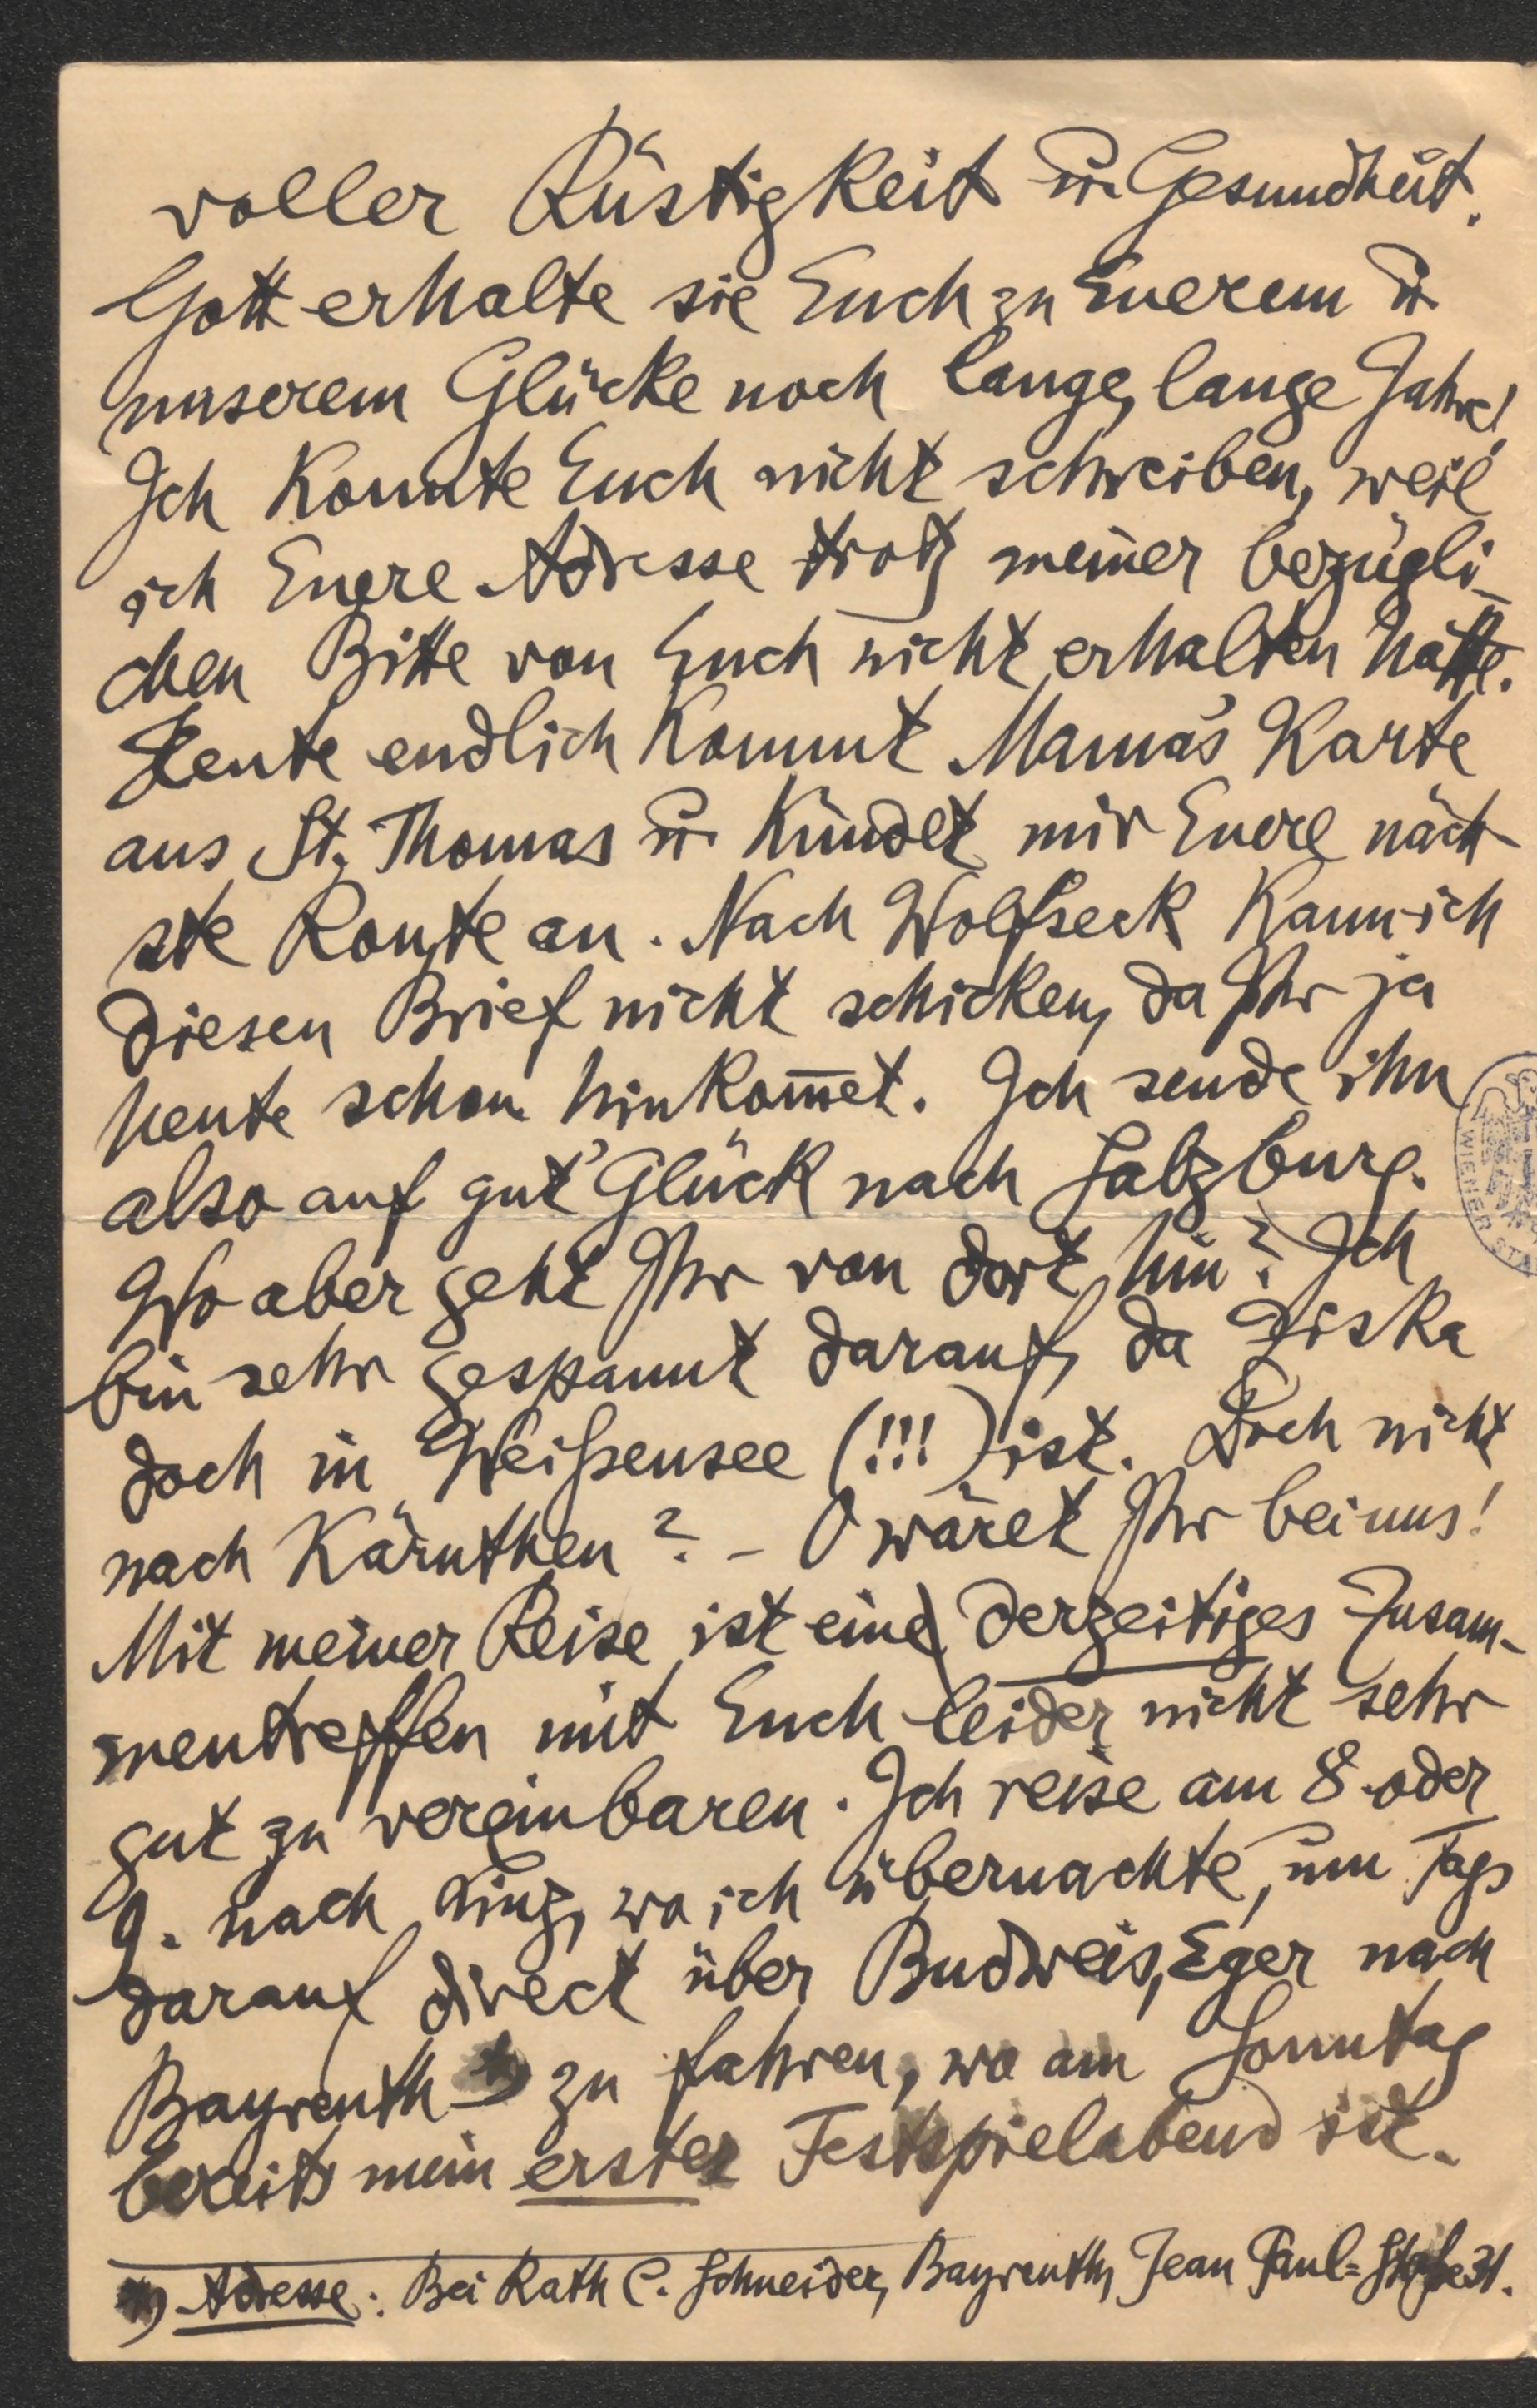 voller Rüstigkeit u. Gesundheit.
Gott erhalte sie Euch zu Euerem u.
unserem Glücke noch lange, lange Jahre!
Ich konnte Euch nicht schreiben, weil
ich Euere Adresse trotz meiner bezügli-
chen Bitte von Euch nicht erhalten hatte.
Heute endlich kommt Mama's Karte
aus St. Thomas u. kündet mir Euere näch-
ste Route an. Nach Wolfseck kann ich
diesen Brief nicht schicken, da Ihr ja
heute schon hinkom̅et. Ich sende ihn
also auf gut' Glück nach Salzburg.
Wo aber geht Ihr von dort hin? Ich
bin sehr gespannt darauf, da Ziska
doch in Weißensee (!!!) ist. Doch nicht
nach Kärnthen? - O wäret Ihr bei uns!
Mit meiner Reise ist ein derzeitiges Zusam-
mentreffen mit Euch leider nicht sehr
gut zu vereinbaren. Ich reise am 8. oder
9. nach Linz, wo ich übernachte, um Tags
darauf direct über Budweis, Eger nach
Bayreuth *) zu fahren, wo am Sonntag
bereits mein erster Festspielabend ist.
*) Adresse: Bei Rath C. Schneider, Bayreuth, Jean Paul=Straße 31.
WIENER ST